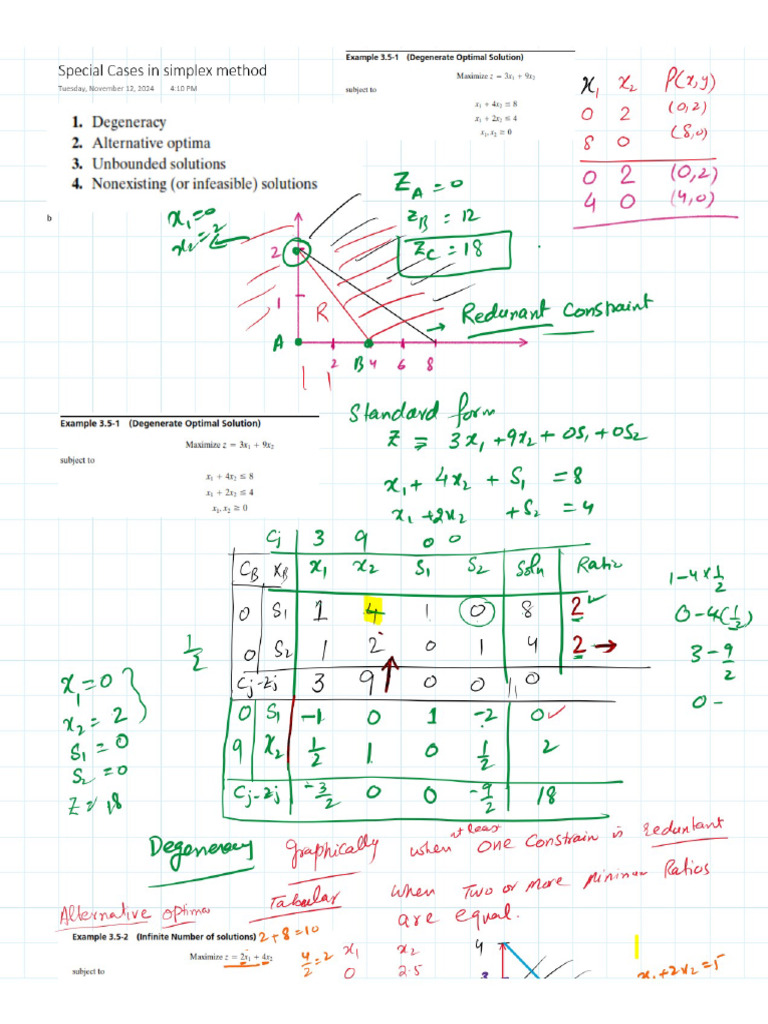 Special Cases in simplex method
Tuesday, November 12, 2024 4:10 PM
1. Degeneracy
2. Alternative optima
3. Unbounded solutions
4. Nonexisting (or infeasible) solutions
b
Example 3.5-1 (Degenerate Optimal Solution)
Maximize z = 3x₁ + 9x₂
subject to
x₁ + 4x₂ ≤ 8
x₁ + 2x₂ ≤ 4
x₁, x₂ ≥ 0
x₁ x₂ P(x,y)
0 2 (0,2)
8 0 (8,0)
0 2 (0,2)
4 0 (4,0)
x₁=0
x₂=2
Z_A = 0
Z_B = 12
Z_C = 18
2
1
R
A
2 B 4 6 8
→ Redunant Constpaint
Example 3.5-1 (Degenerate Optimal Solution)
Maximize z = 3x₁ + 9x₂
subject to
x₁ + 4x₂ ≤ 8
x₁ + 2x₂ ≤ 4
x₁, x₂ ≥ 0
Standard form
Z = 3x₁ + 9x₂ + 0S₁ + 0S₂
x₁ + 4x₂ + S₁ = 8
x₁ + 2x₂ + S₂ = 4
Cj 3 9 0 0
C_B X_B x₁ x₂ S₁ S₂ Soln Ratio
0 S₁ 1 4 1 0 8 2 ✓
0 S₂ 1 2 0 1 4 2 →
Cj-Zj 3 9 0 0 0
0 S₁ -1 0 1 -2 0 ✓
9 X₂ 1/2 1 0 1/2 2
Cj-Zj -3/2 0 0 -9/2 18
1/2
x₁ = 0
x₂ = 2
S₁ = 0
S₂ = 0
Z = 18
1-4×1/2
0-4(1/2)
3-9/2
0-
Degeneracy graphically when at least one constrain is reduntant
Tabular when Two or more mininum Ratios
are equal.
Alternative optima
Example 3.5-2 (Infinite Number of solutions) 2+8=10
Maximize z = 2x₁ + 4x₂ 4/2=2 x₁ x₂ 4
subject to 0 2.5 3 x₁+2x₂=5